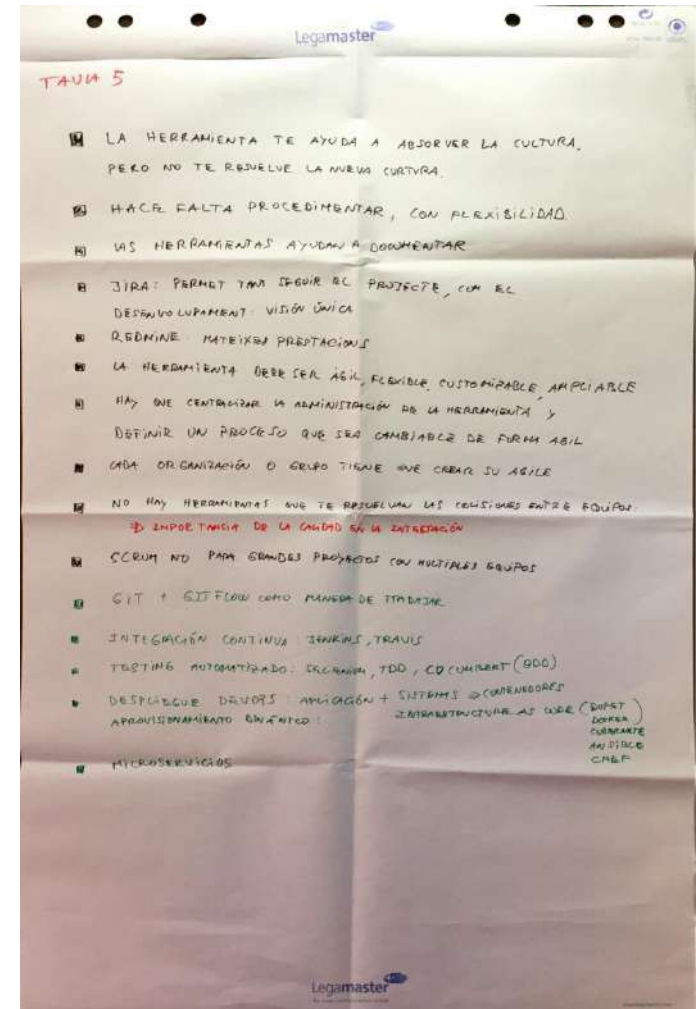 Legamaster
TAULA 5
LA HERRAMIENTA TE AYUDA A ABSORVER LA CULTURA,
PERO NO TE RESUELVE LA NUEVA CURTURA.
HACE FALTA PROCEDIMENTAR, CON FLEXIBILIDAD
LAS HERRAMIENTAS AYUDAN A DOCUMENTAR
JIRA: PERMET TANT SEGUIR EL PROJECTE, COM EL
DESENVOLUPAMENT: VISIÓN ÚNICA
REDMINE: MATEIXES PRESTACIONS
LA HERRAMIENTA DEBE SER ÁGIL, FLEXIBLE, CUSTOMIZABLE, AMPLIABLE
HAY QUE CENTRALIZAR LA ADMINISTRACIÓN DE LA HERRAMIENTA Y
DEFINIR UN PROCESO QUE SEA CAMBIABLE DE FORMA AGIL
CADA ORGANIZACIÓN O GRUPO TIENE QUE CREAR SU AGILE
NO HAY HERRAMIENTAS QUE TE RESUELVAN LAS COLISIONES ENTRE EQUIPOS
⇒ IMPORTANCIA DE LA CALIDAD EN LA INTEGRACIÓN
SCRUM NO PARA GRANDES PROYECTOS CON MULTIPLES EQUIPOS
GIT + GITFLOW COMO MANERA DE TRABAJAR
INTEGRACIÓN CONTINUA JENKINS, TRAVIS
TESTING AUTOMATIZADO: SELENIUM, TDD, CUCUMBERT (BDD)
DESPLIEGUE DEVOPS: APLICACIÓN + SISTEMAS ⇒ CONTENEDORES
APROVISIONAMIENTO DINÁMICO: INFRAESTRUCTURE AS CODE (PUPET
DOCKER)
ANSIBLE
CHEF
MICROSERVICIOS
Legamaster